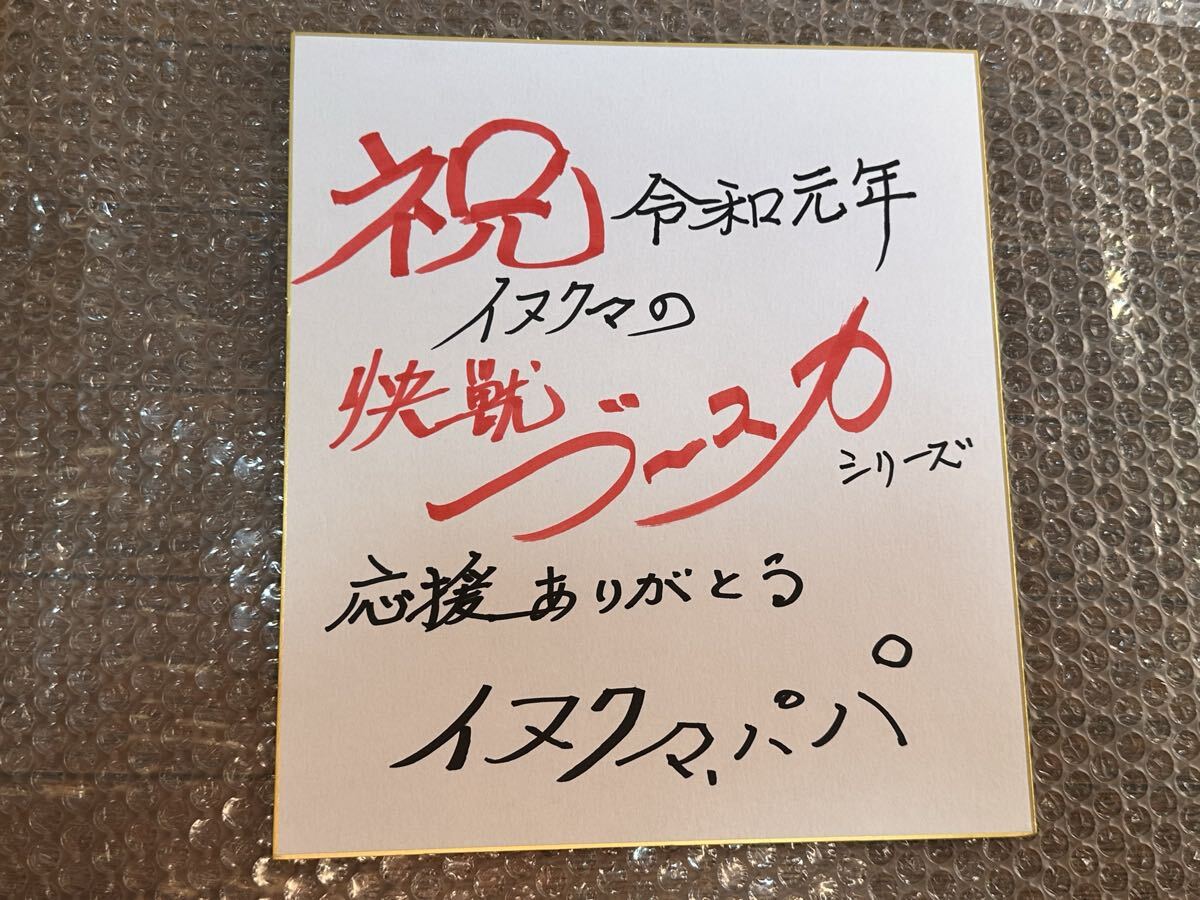 祝 令和元年
イヌクマの
快獣ブースカ
シリーズ
応援ありがとう
イヌクマパパ